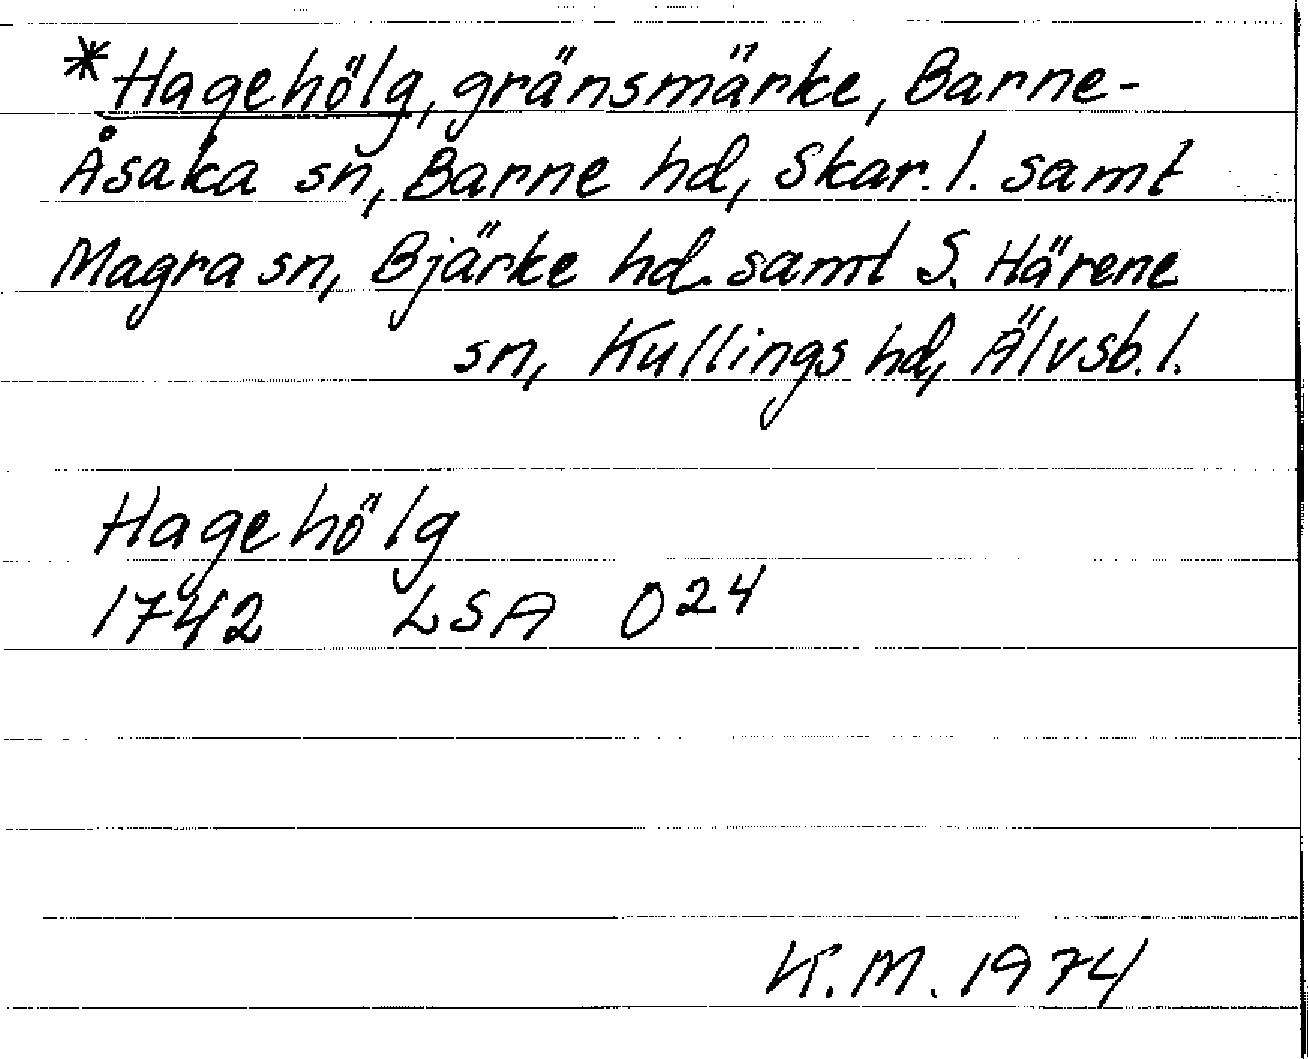 *Hagehölg, gränsmärke, Barne-
Åsaka sn, Barne hd, Skar. l. samt
Magra sn, Bjärke hd. samt S. Härene
sn, Kullings hd, Älvsb. l.
Hagehölg
1742 LSA O24
K.M. 1974